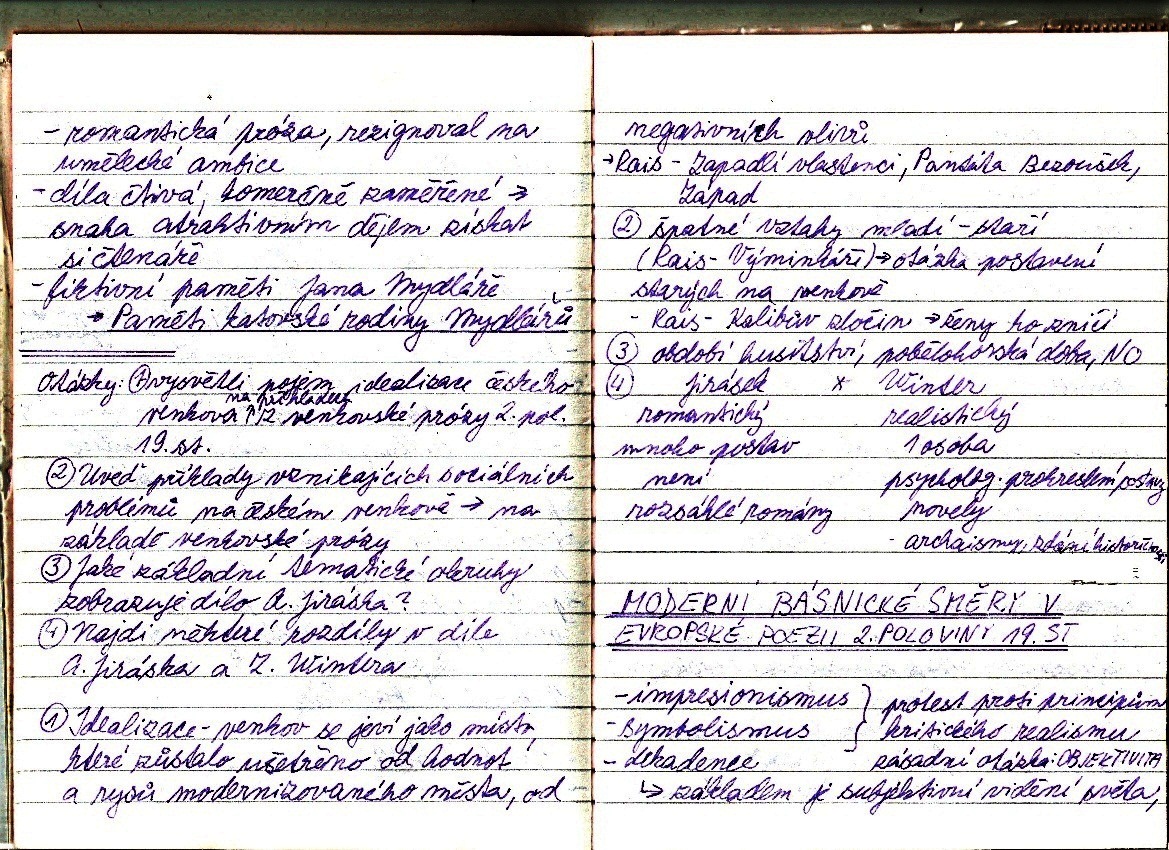 - romantická próza, rezignoval na
umělecké ambice
- díla čtivá, komerčně zaměřené →
snaha atraktivním dějem získat
si čtenáře
- fiktivní paměti Jana Mydláře
→ Paměti katovské rodiny Mydlářů
Otázky: ① vysvětli pojem idealizace českého
na příkladech
venkova ↑ z venkovské prózy 2. pol.
19. st.
② Uveď příklady vznikajících sociálních
problémů na českém venkově → na
základě venkovské prózy
③ Jaké základní tématické okruhy
zobrazuje dílo A. Jiráska?
④ Najdi některé rozdíly v díle
A. Jiráska a Z. Wintra
① Idealizace - venkov se jeví jako místo,
které zůstalo ušetřeno od hodnot
a rysů modernizovaného města, od
negativních vlivů
→ Rais - Zapadlí vlastenci, Pantáta Bezoušek,
Západ
② špatné vztahy mladí - staří
(Rais - Výminkáři) → otázka postavení
starých na venkově
- Rais - Kalibův zločin → ženy ho zničí
③ období husitství, pobělohorská doba, NO
④ Jirásek × Winter
romantický realistický
mnoho postav 1 osoba
není psycholog. prokreslení postavy
rozsáhlé romány novely
- archaismy, zdání
MODERNÍ BÁSNICKÉ SMĚRY V
EVROPSKÉ POEZII 2. POLOVINY 19. ST
- impresionismus } protest proti principům
- symbolismus kritického realismu
- dekadence zásadní otázka: OBJEKTIVITA
↳ základem je subjektivní vidění světa,